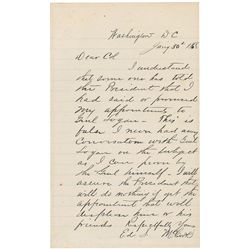 Washington D C
Jany 30th
Dear Col
I understand
that some one has told
the President that I
had said or promised
my appointment to
Genl Logan - This is
false I never had any
Conversation with Genl
Logan on the subject
as I can prove by
the Genl himself. I will
assure the President that
will do nothing if get the
appointment that will
displease him or his
friends Respectfully Yours
Ed. S.